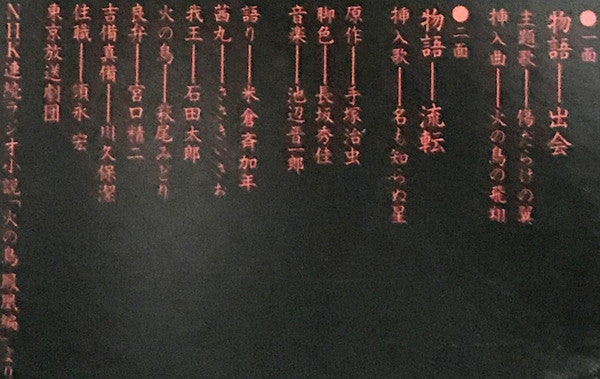 ●一面
物語——出会
主題歌——傷だらけの翼
挿入曲——火の鳥の飛翔
●二面
物語——流転
挿入歌——名も知らぬ星
原作——手塚治虫
脚色——長坂秀佳
音楽——池辺晋一郎
語り——米倉斉加年
茜丸——ささきいさお
我王——石田太郎
火の鳥——萩尾みどり
良弁——宮口精二
吉備真備——川久保潔
住職——須永 宏
東京放送劇団
NHK連続ラジオ小説「火の鳥 鳳凰編」より